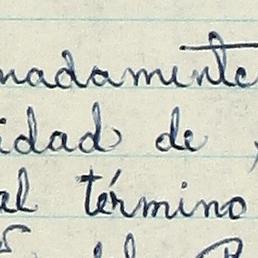 nadamente
idad de
al término